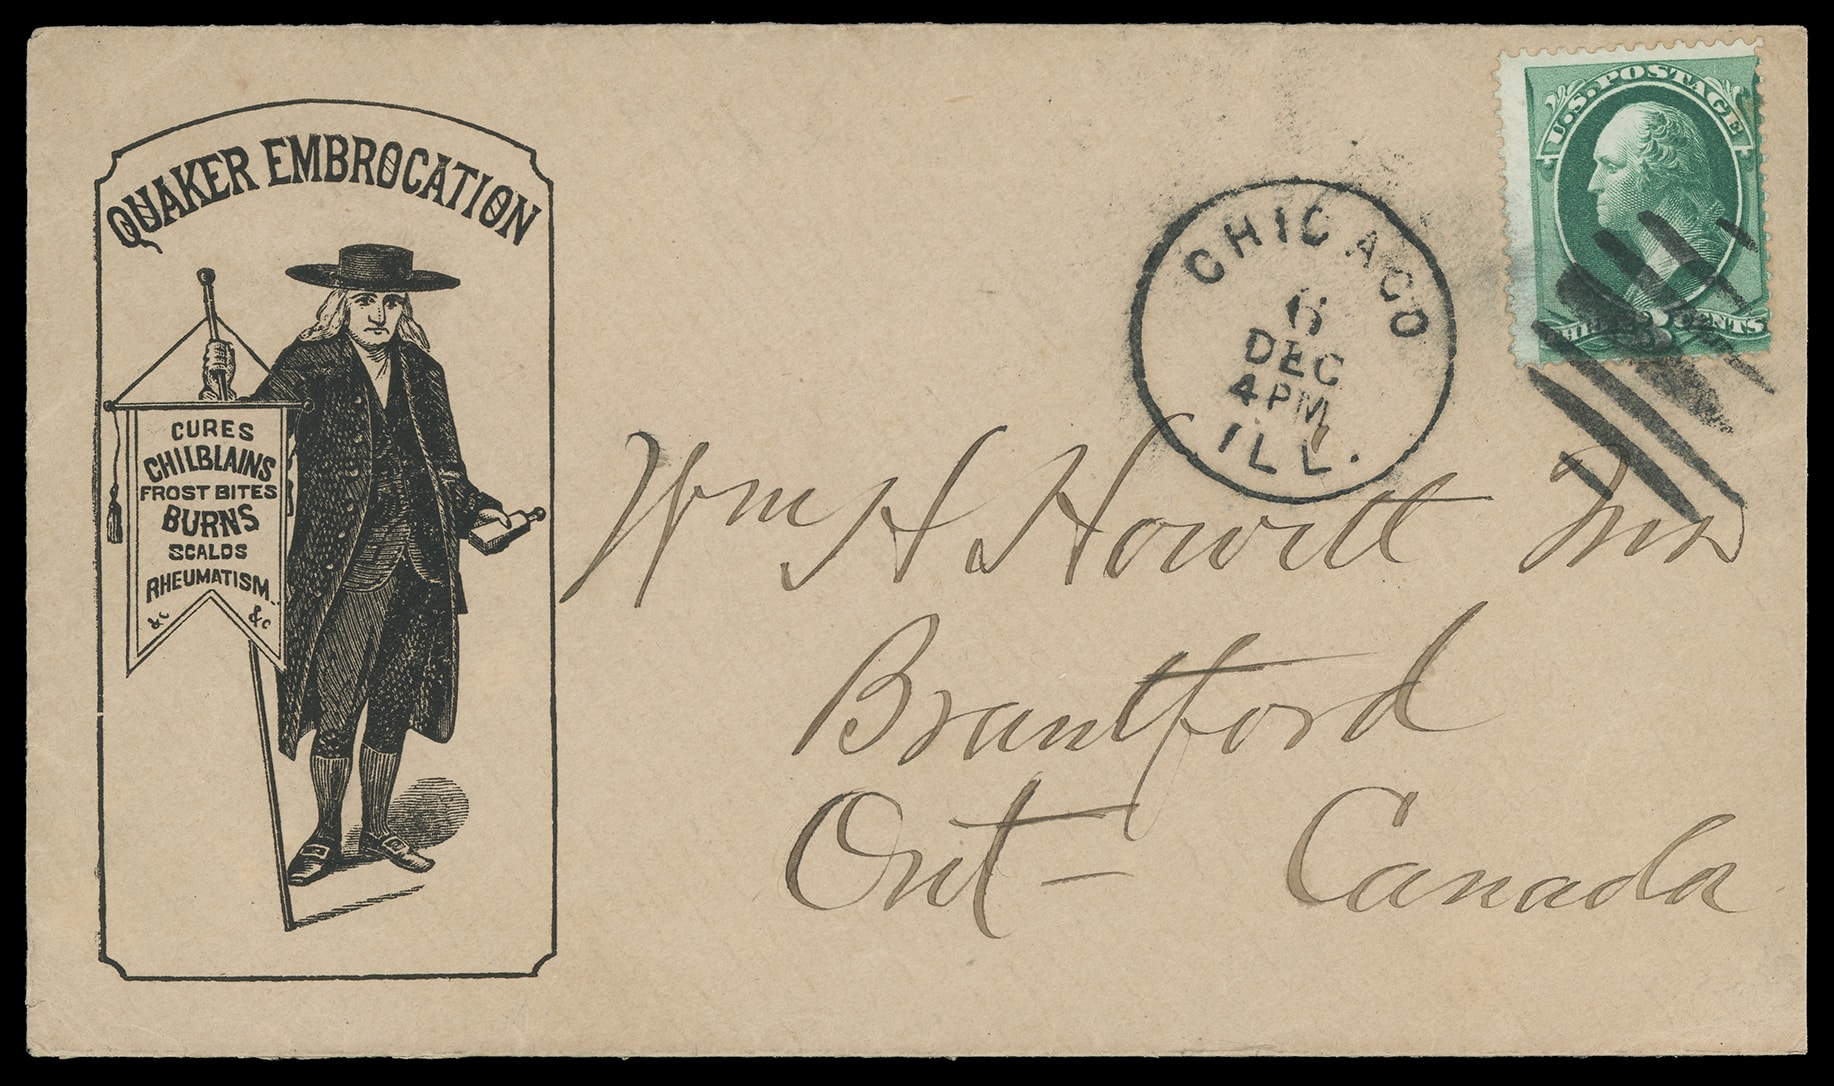 QUAKER EMBROCATION
CURES
CHILBLAINS
FROST BITES
BURNS
SCALDS
RHEUMATISM.
&c &c
CHICAGO
6
DEC
4 PM
ILL.
U.S. POSTAGE
THREE 3 CENTS
Wm H Howitt
Brantford
Ont - Canada